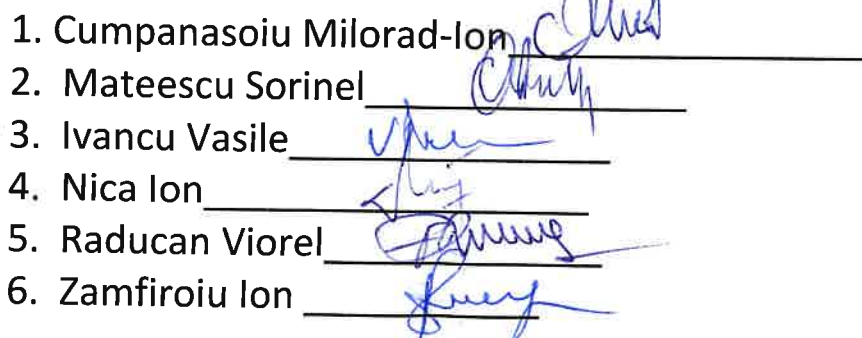 1. Cumpanasoiu Milorad-Ion
2. Mateescu Sorinel
3. Ivancu Vasile
4. Nica Ion
5. Raducan Viorel
6. Zamfiroiu Ion